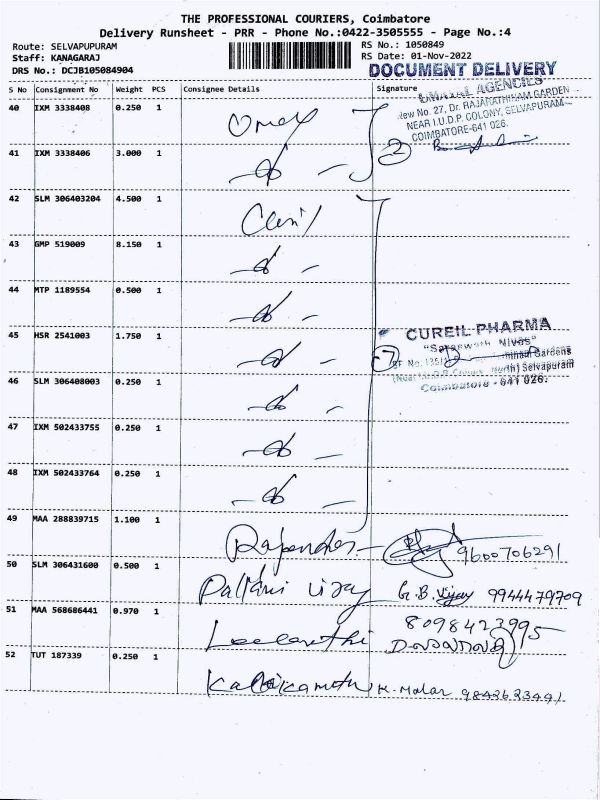 THE PROFESSIONAL COURIERS, Coimbatore
Delivery Runsheet - PRR - Phone No.:0422-3505555 - Page No.:4
Route: SELVAPUPURAM
Staff: KANAGARAJ
DRS No.: DCJB105084904
RS No.: 1050849
RS Date: 01-Nov-2022
DOCUMENT DELIVERY
S No Consignment No Weight PCS Consignee Details Signature
AGENCIES
New No. 27, Dr. RAJARATHINAM GARDEN
NEAR I.U.D.P. COLONY, SELVAPURAM
COIMBATORE-641 026.
40 IXM 3338408 0.250 1
2
41 IXM 3338406 3.000 1
42 SLM 306403204 4.500 1
43 GMP 519009 8.150 1
44 MTP 1189554 0.500 1
CUREIL PHARMA
"Saraswathi Nivas"
45 HSR 2541003 1.750 1
7
Gardens
Selvapuram
Coimbatore - 641 026.
46 SLM 306408003 0.250 1
47 IXM 502433755 0.250 1
48 IXM 502433764 0.250 1
49 MAA 288839715 1.100 1 Rajendran 9600706291
50 SLM 306431600 0.500 1 Vijay G.B. Vijay 9944479709
51 MAA 568686441 0.970 1 8098423995
52 TUT 187339 0.250 1 K. Malar